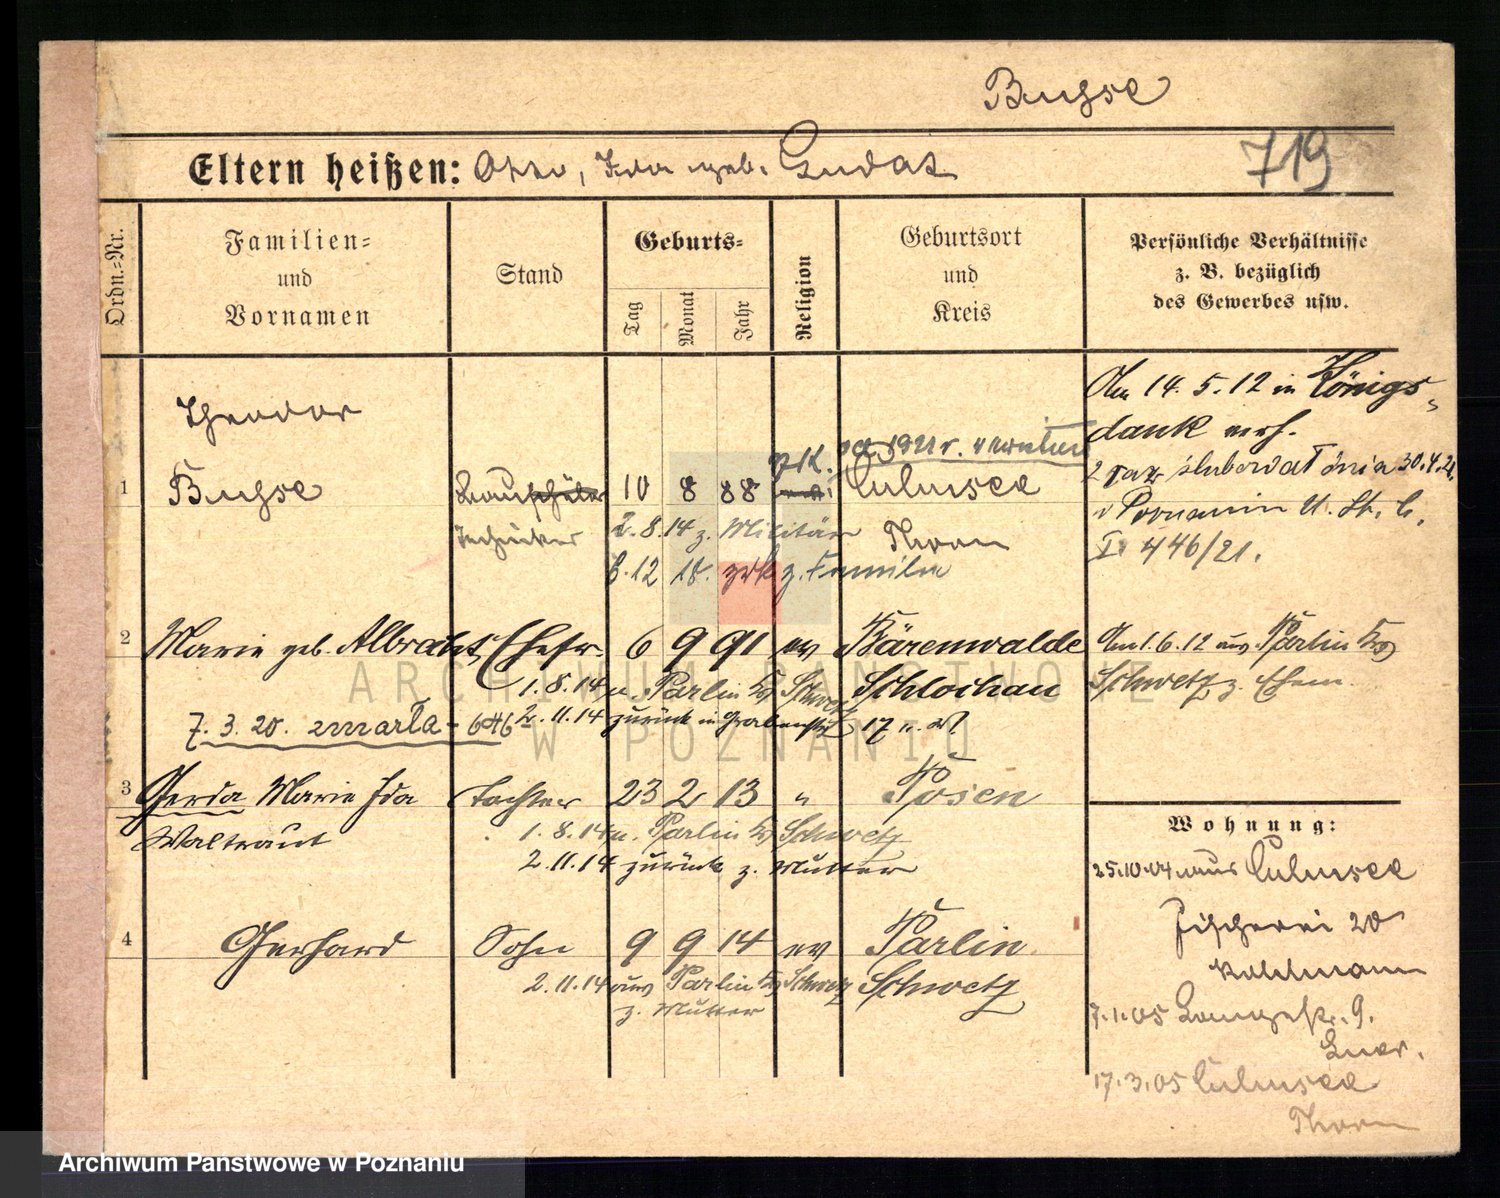 Busse
719
Eltern heißen: Otto, Ida geb. Gudat
Ordn.=Nr.
Familien=
und
Vornamen
Stand
Geburts=
Tag
Monat
Jahr
Religion
Geburtsort
und
Kreis
Persönliche Verhältnisse
z. B. bezüglich
des Gewerbes usw.
Theodor
1 Busse
Bauschüler
Techniker
10 8 88
Culmsee
Thorn
2.8.14 z. Militär
6.12 18. zrk z. Familie
Am 14.5.12 in Königs-
dank verh.
2 raz 30.4.21
446/21.
2 Marie geb. Albrecht, Ehefr. 6 9 91 ev Bärenwalde
Schlochau
1.8.14 n. Parlin Kr Schwetz
7.3.20. zmarła - 646
2.11.14 zurück in
Am 1.6.12 aus Parlin Kr
Schwetz z. Ehem.
3 Gerda Marie Ida
Waltraut
Tochter 23 2 13 " Posen
1.8.14 n. Parlin Kr Schwetz
2.11.14 zurück z. Mutter
4 Gerhard Sohn 9 9 14 ev Parlin
Schwetz
2.11.14 aus Parlin Kr Schwetz
z. Mutter
Wohnung:
25.10.04 aus Culmsee
Fischerei 20
Kohlmann
7.1.05 Langestr. 9.
17.3.05 Culmsee
Thorn
ARCHIWUM PAŃSTWOWE
W POZNANIU
Archiwum Państwowe w Poznaniu